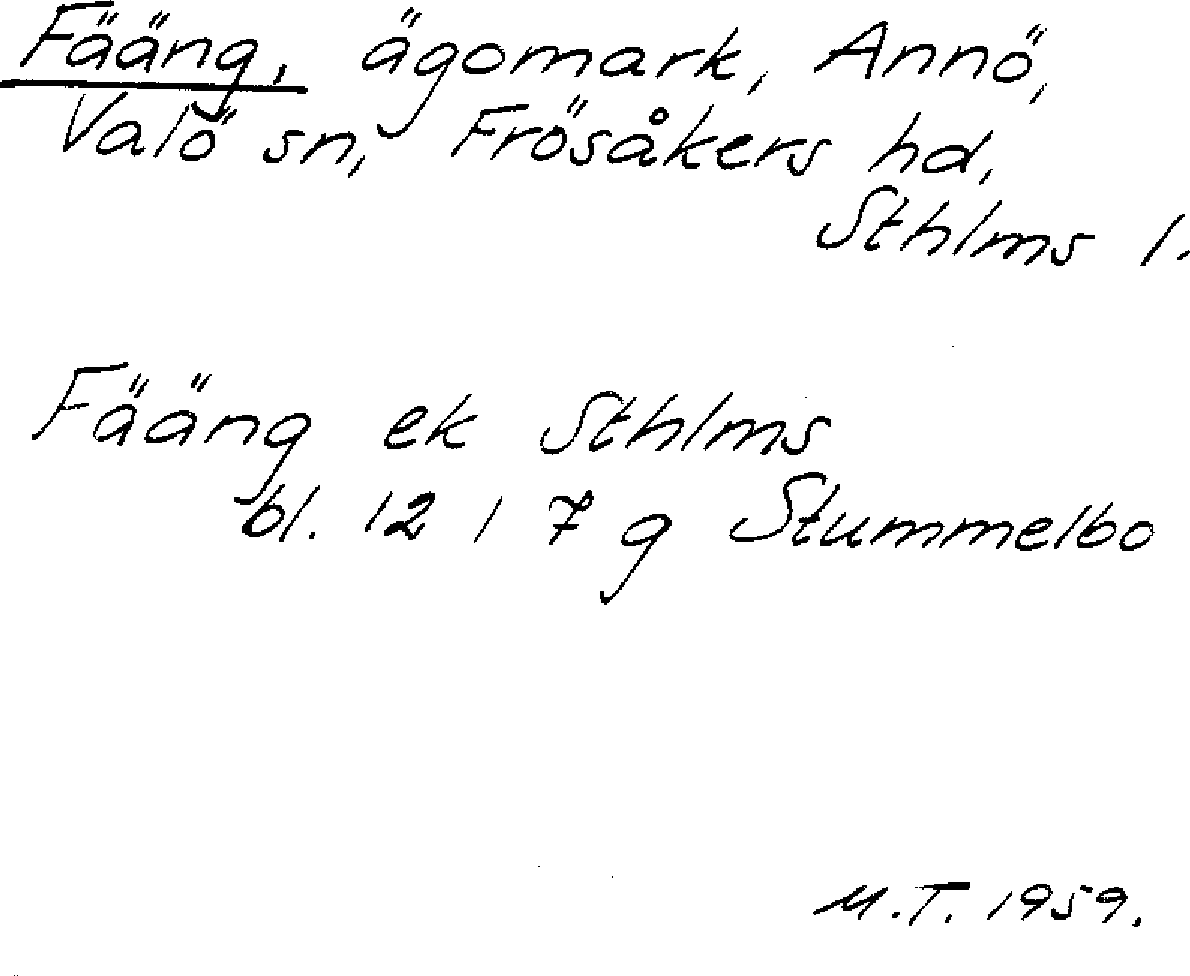 Fääng, ägomark, Annö,
Valö sn, Frösåkers hd,
Sthlms l.
Fääng ek Sthlms
bl. 12 I 7 g Stummelbo
M.T. 1959.